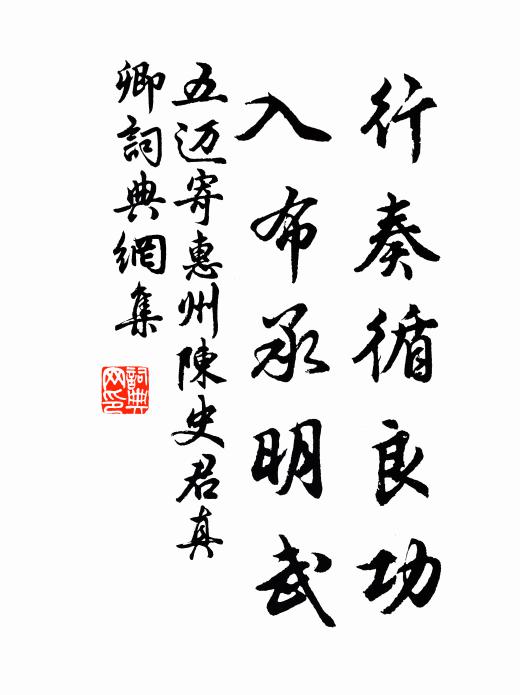 行奏循良功
入布承明武
五迈寄惠州陳史君真
卿詞典網集
詞典
网印